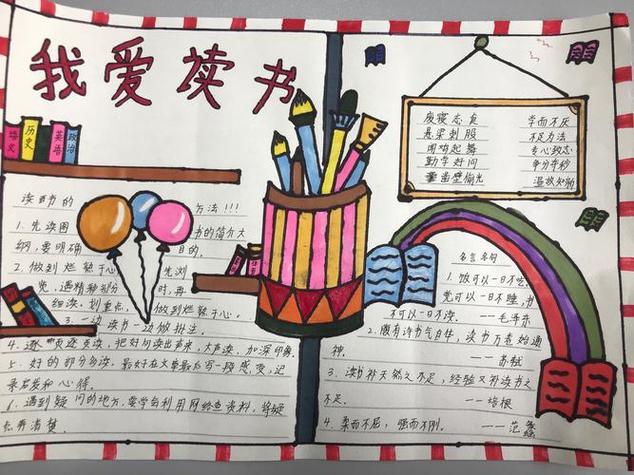 我爱读书
语文
历史
英语
政治
读书的方法!!!
1. 先读图书的简介大
纲,要明确目的。
2. 做到烂熟于心,先浏
览,遇精彩部分时,再
细读。划重点,做到烂熟于心。
3. 一边读书一边做批注。
4. 逐页逐页读,把好句读出声来,大声读,加深印象。
5. 好的部分多读。最好在文章最后写一段感受,记
录启发和心得。
6. 遇到疑问的地方,要学会利用网络查资料,将疑
点弄清楚。
废寝忘食 学而不厌
悬梁刺股 不足为法
闻鸡起舞 专心致志
勤学好问 争分夺秒
凿壁偷光 温故知新
名言名句
1. 饭可以一日不吃,
觉可以一日不睡,书
不可以一日不读。——毛泽东
2. 腹有诗书气自华,读书万卷始通
神。——苏轼
3. 读书补天然之不足,经验又补读书之
不足。——培根
4. 柔而不屈,强而不刚。——范蠡